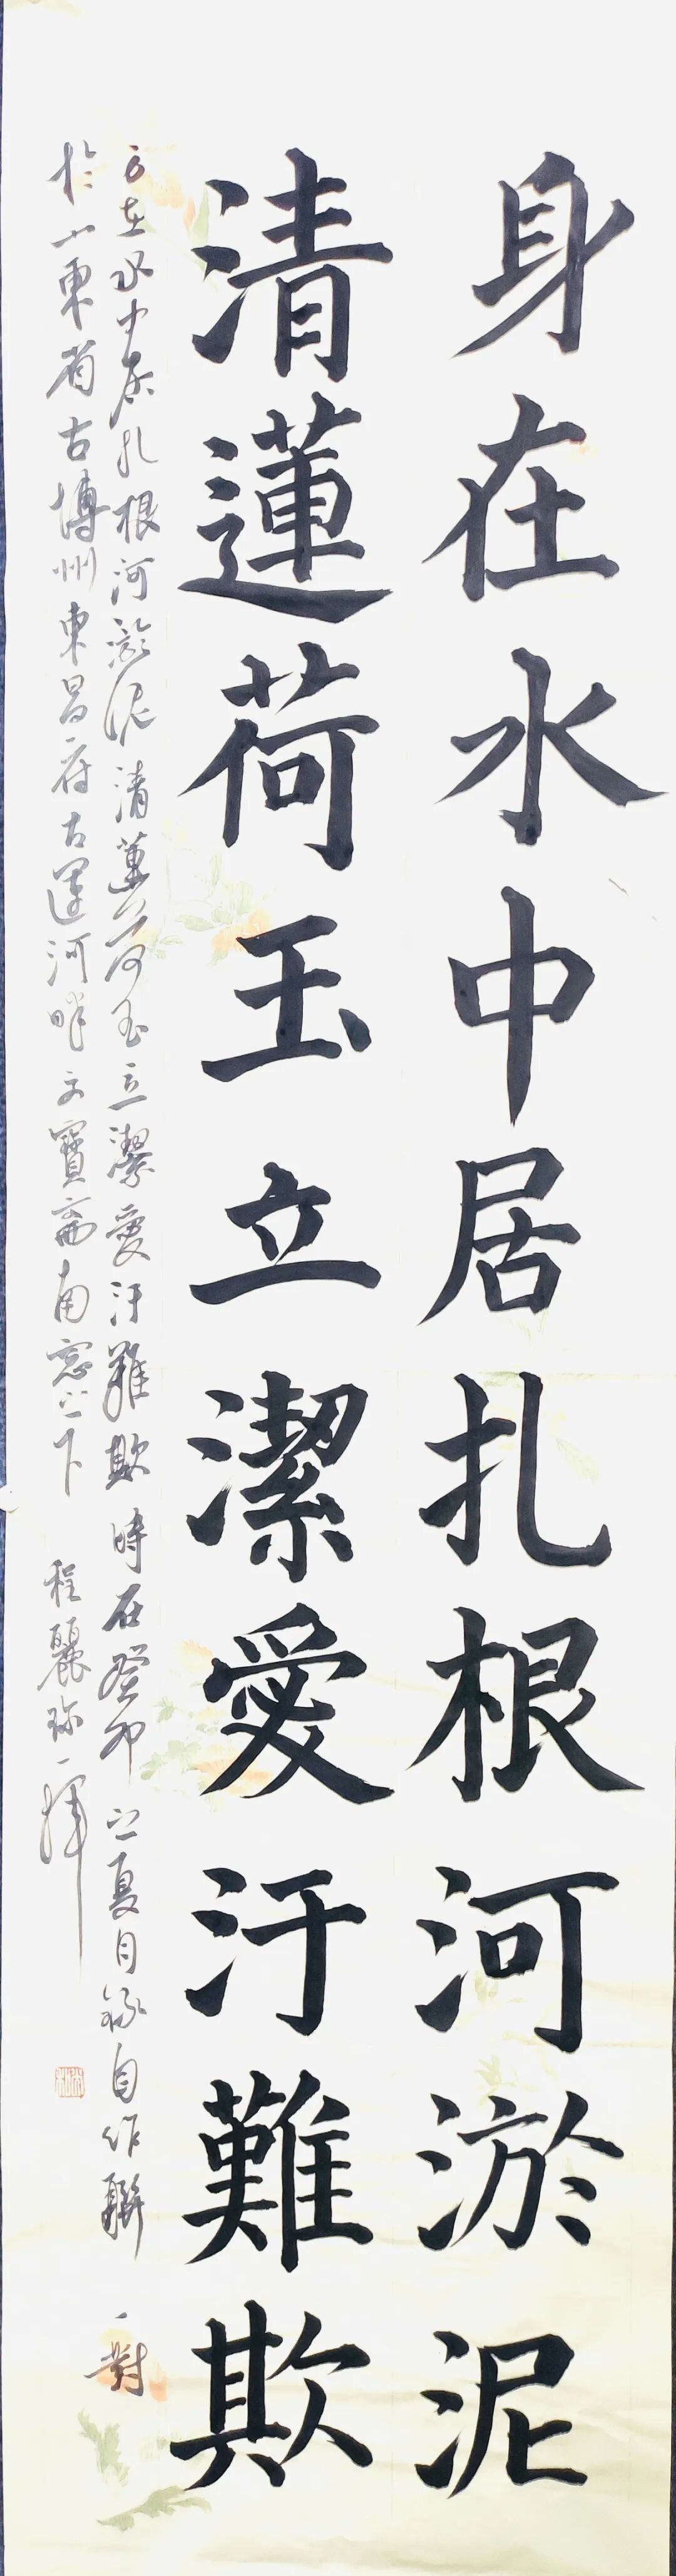 身在水中居扎根河淤泥
清蓮荷玉立潔愛汙難欺
身在水中居扎根河淤泥清蓮荷玉立潔愛汙難欺時在癸卯之夏月錄自作聯一對
於山東省古博州東昌府古運河畔文寶齋南窓之下 程麗珍一揮